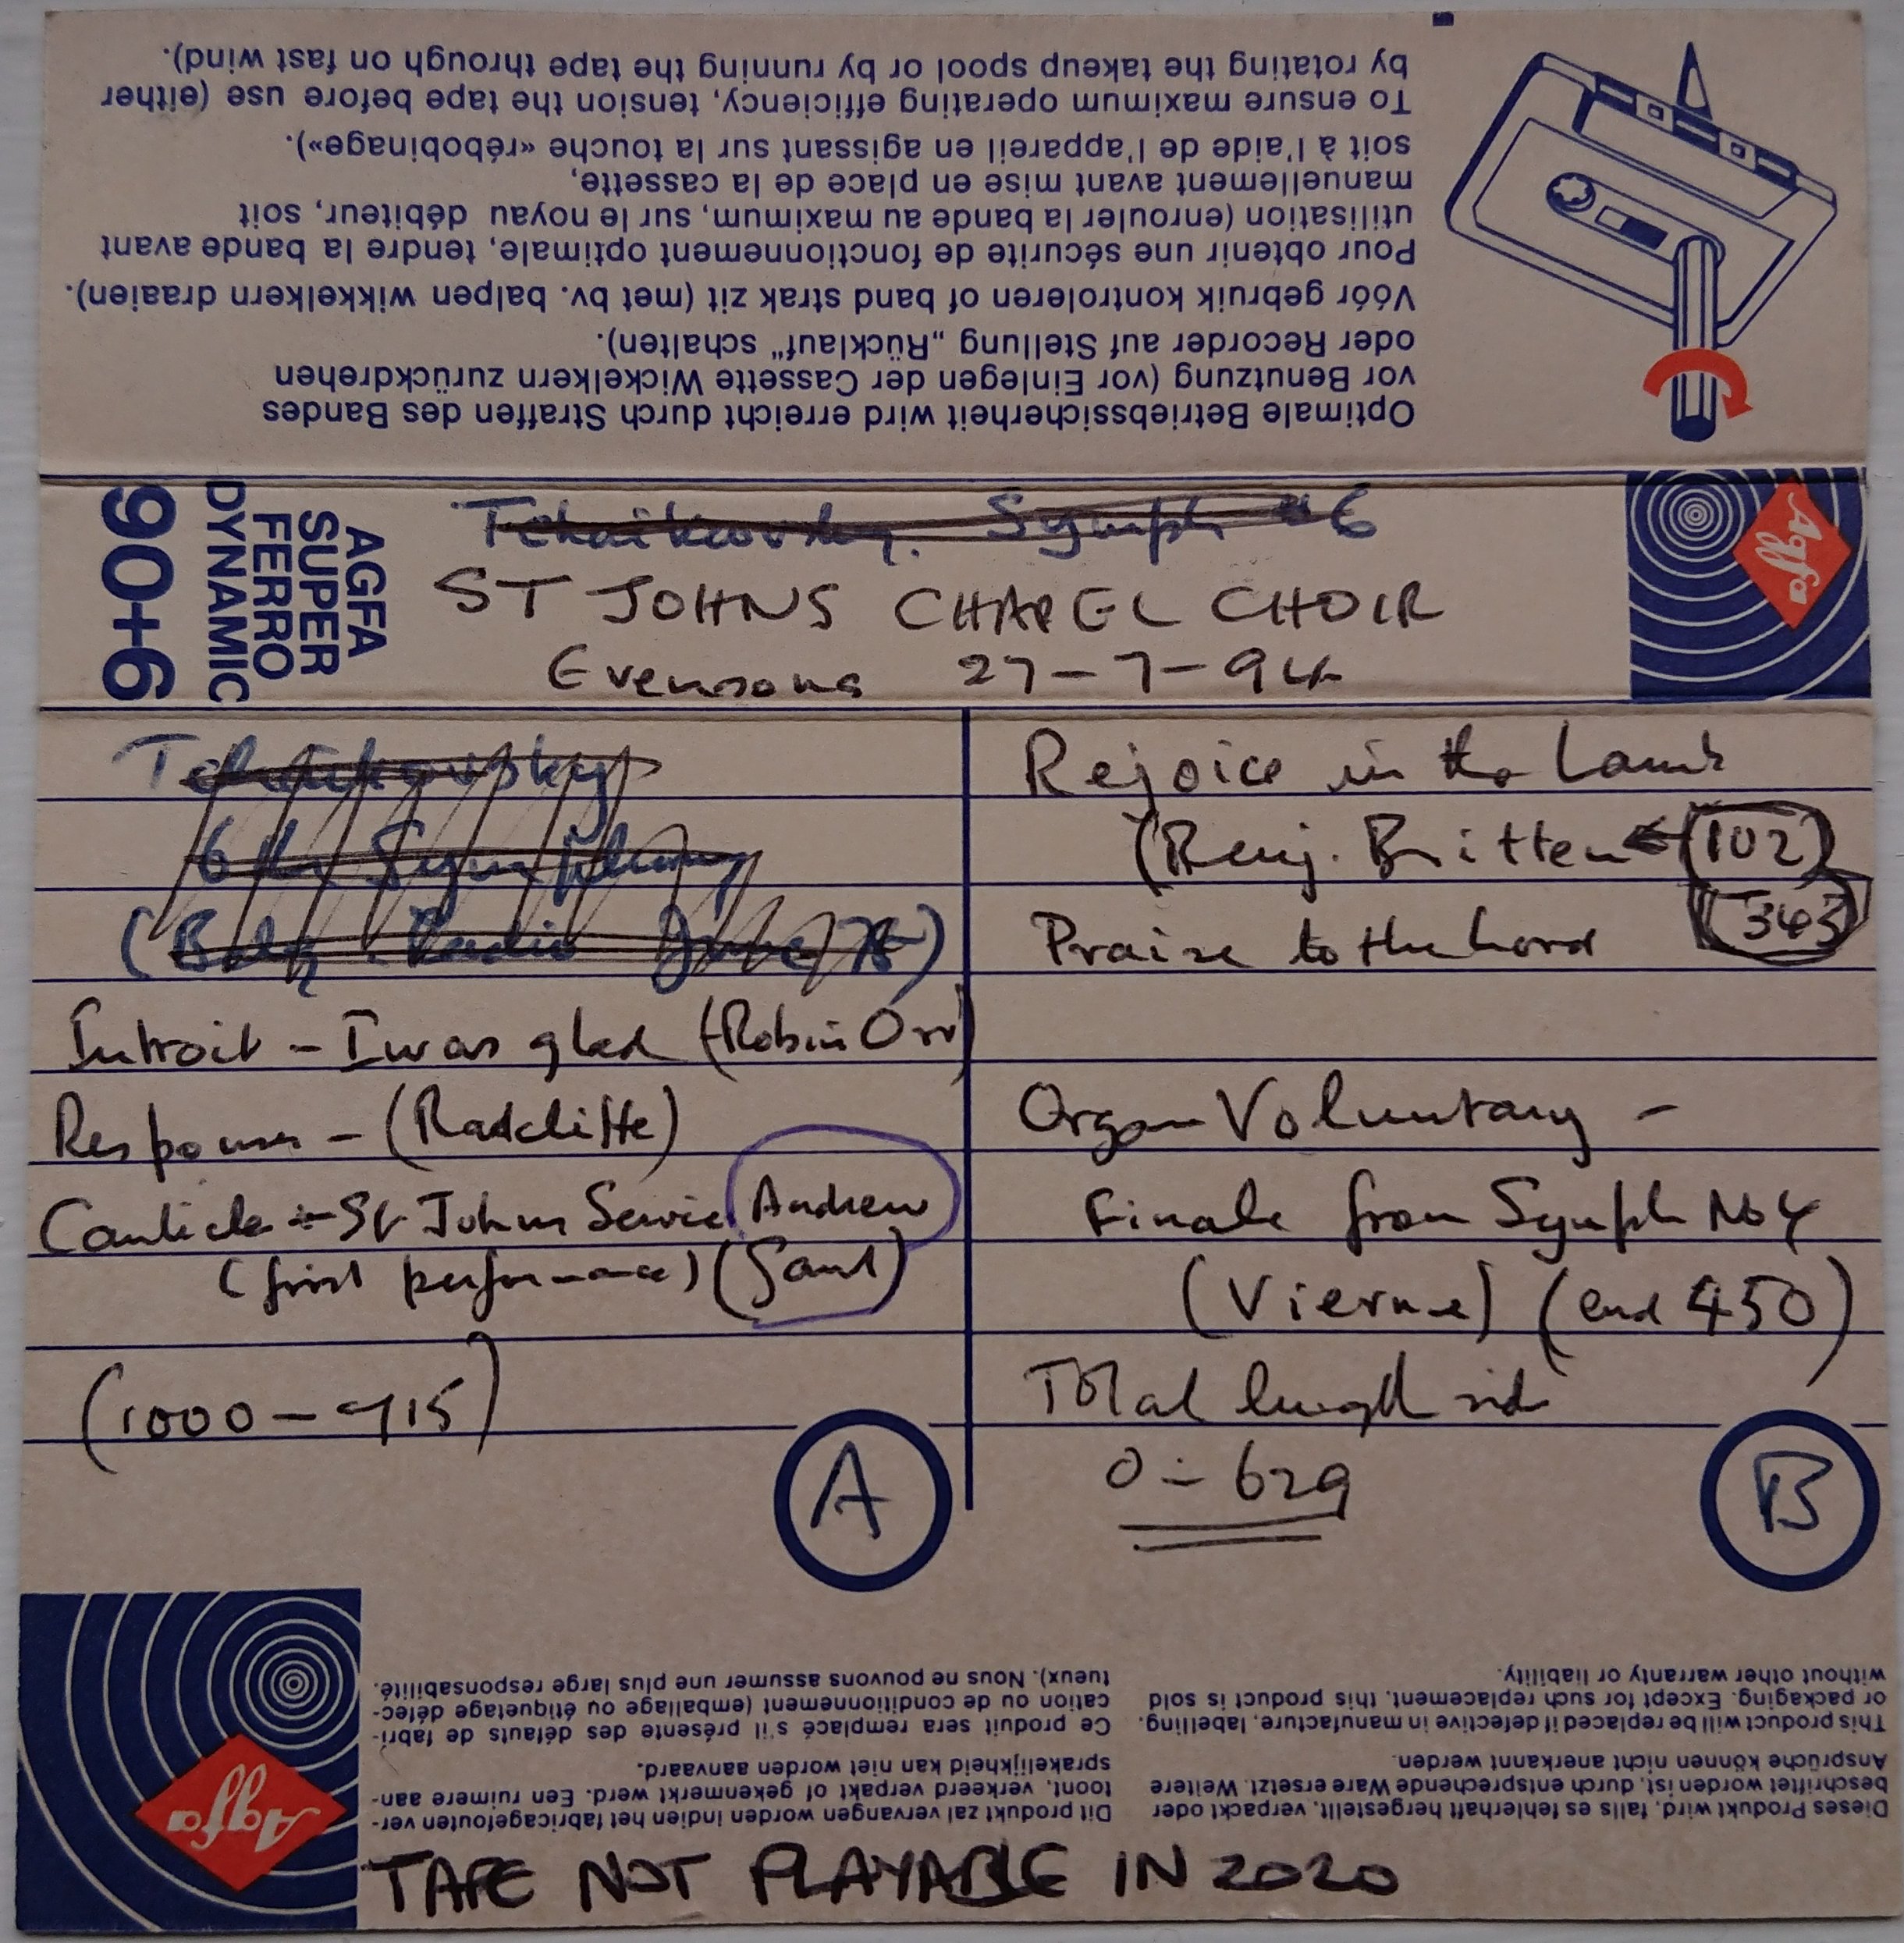 Optimale Betriebssicherheit wird erreicht durch Straffen des Bandes
vor Benutzung (vor Einlegen der Cassette Wickelkern zurückdrehen
oder Recorder auf Stellung „Rücklauf" schalten).
Vóór gebruik kontroleren of band strak zit (met bv. balpen wikkelkern draaien).
Pour obtenir une sécurite de fonctionnement optimale, tendre la bande avant
utilisation (enrouler la bande au maximum, sur le noyau débiteur, soit
manuellement avant mise en place de la cassette,
soit à l'aide de l'appareil en agissant sur la touche «rébobinage»).
To ensure maximum operating efficiency, tension the tape before use (either
by rotating the takeup spool or by running the tape through on fast wind).
AGFA
SUPER
FERRO
DYNAMIC
90+6
Tchaikovsky. Symph #6
ST JOHNS CHAPEL CHOIR
Evensong 27-7-94
Agfa
Tchaikovsky
6th Symphony
(Belg. Radio June 78)
Introit - I was glad (Robin Orr)
Responses - (Radcliffe)
Canticle - St Johns Service Andrew
(first performance) (Gant)
(1000-915)
A
Rejoice in the Lamb
(Benj. Britten ← (102)
Praise to the Lord (343)
Organ Voluntary -
Finale from Symph No 4
(Vierne) (end 450)
Total length side
0-629
B
Agfa
Dieses Produkt wird, falls es fehlerhaft hergestellt, verpackt oder
beschriftet worden ist, durch entsprechende Ware ersetzt. Weitere
Ansprüche können nicht anerkannt werden.
This product will be replaced if defective in manufacture, labelling,
or packaging. Except for such replacement, this product is sold
without other warranty or liability.
Dit produkt zal vervangen worden indien het fabricagefouten ver-
toont, verkeerd verpakt of gekenmerkt werd. Een ruimere aan-
sprakelijkheid kan niet worden aanvaard.
Ce produit sera remplacé s'il présente des défauts de fabri-
cation ou de conditionnement (emballage ou étiquetage défec-
tueux). Nous ne pouvons assumer une plus large responsabilité.
TAPE NOT PLAYABLE IN 2020